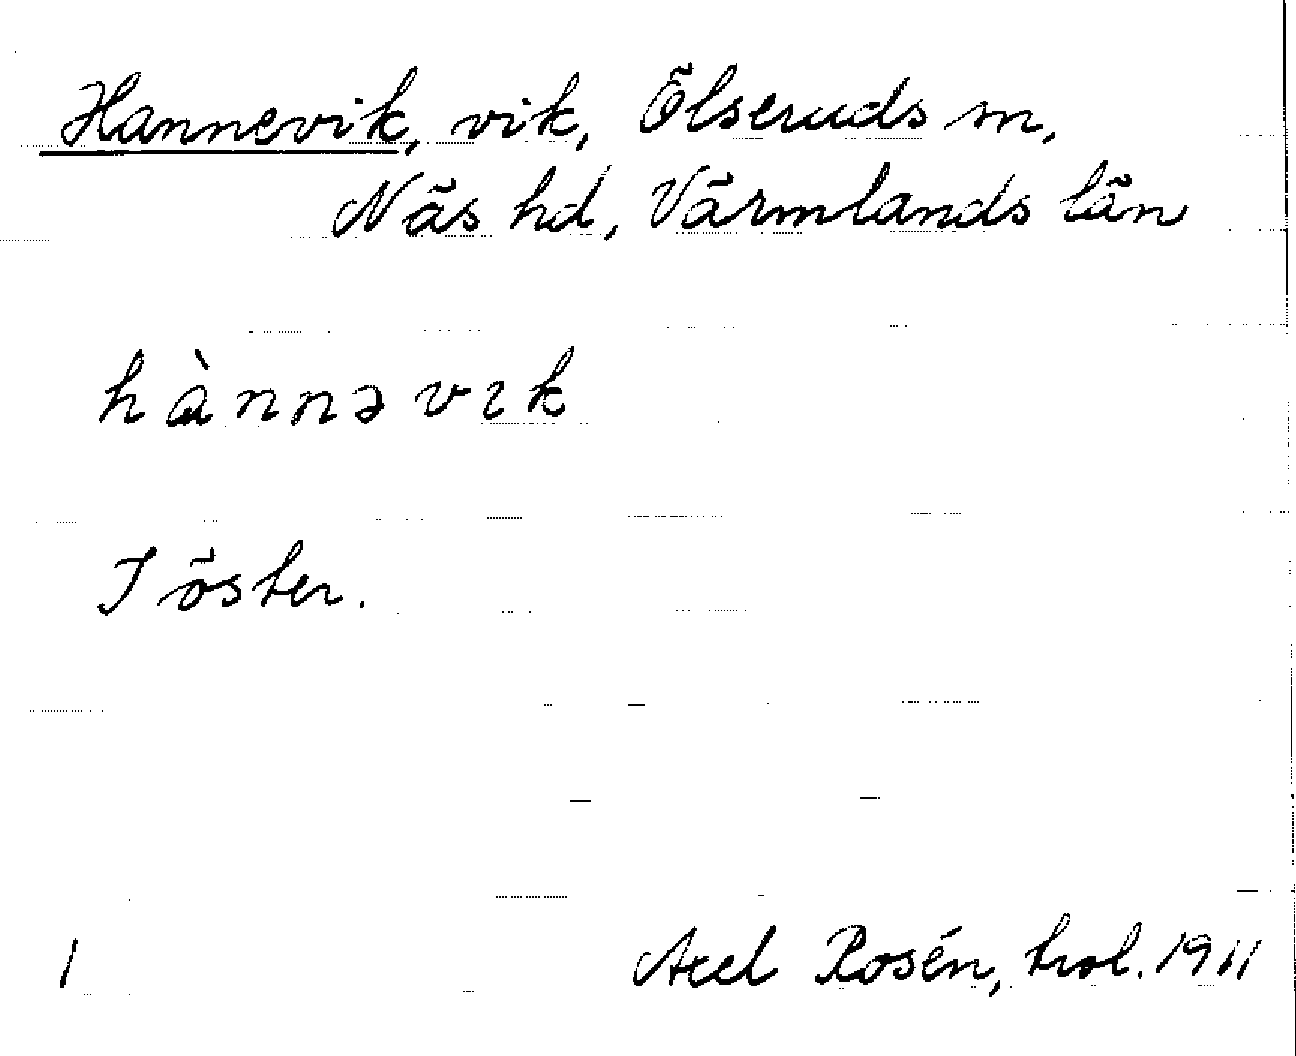 Hannevik, vik, Ölseruds sn,
Näs hd, Värmlands län
hànnəvɪk
I öster.
1
Axel Rosén, trol. 1911